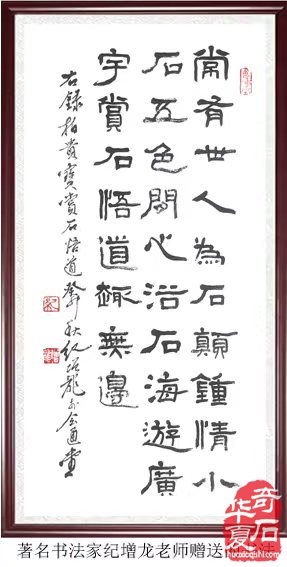 常有世人為石顛鍾情小
石五色間心浴石海遊廣
宇賞石悟道趣無邊
右録柏貴寶賞石悟道 秋紀增龍 通堂
著名书法家纪增龙老师赠送
华夏奇石